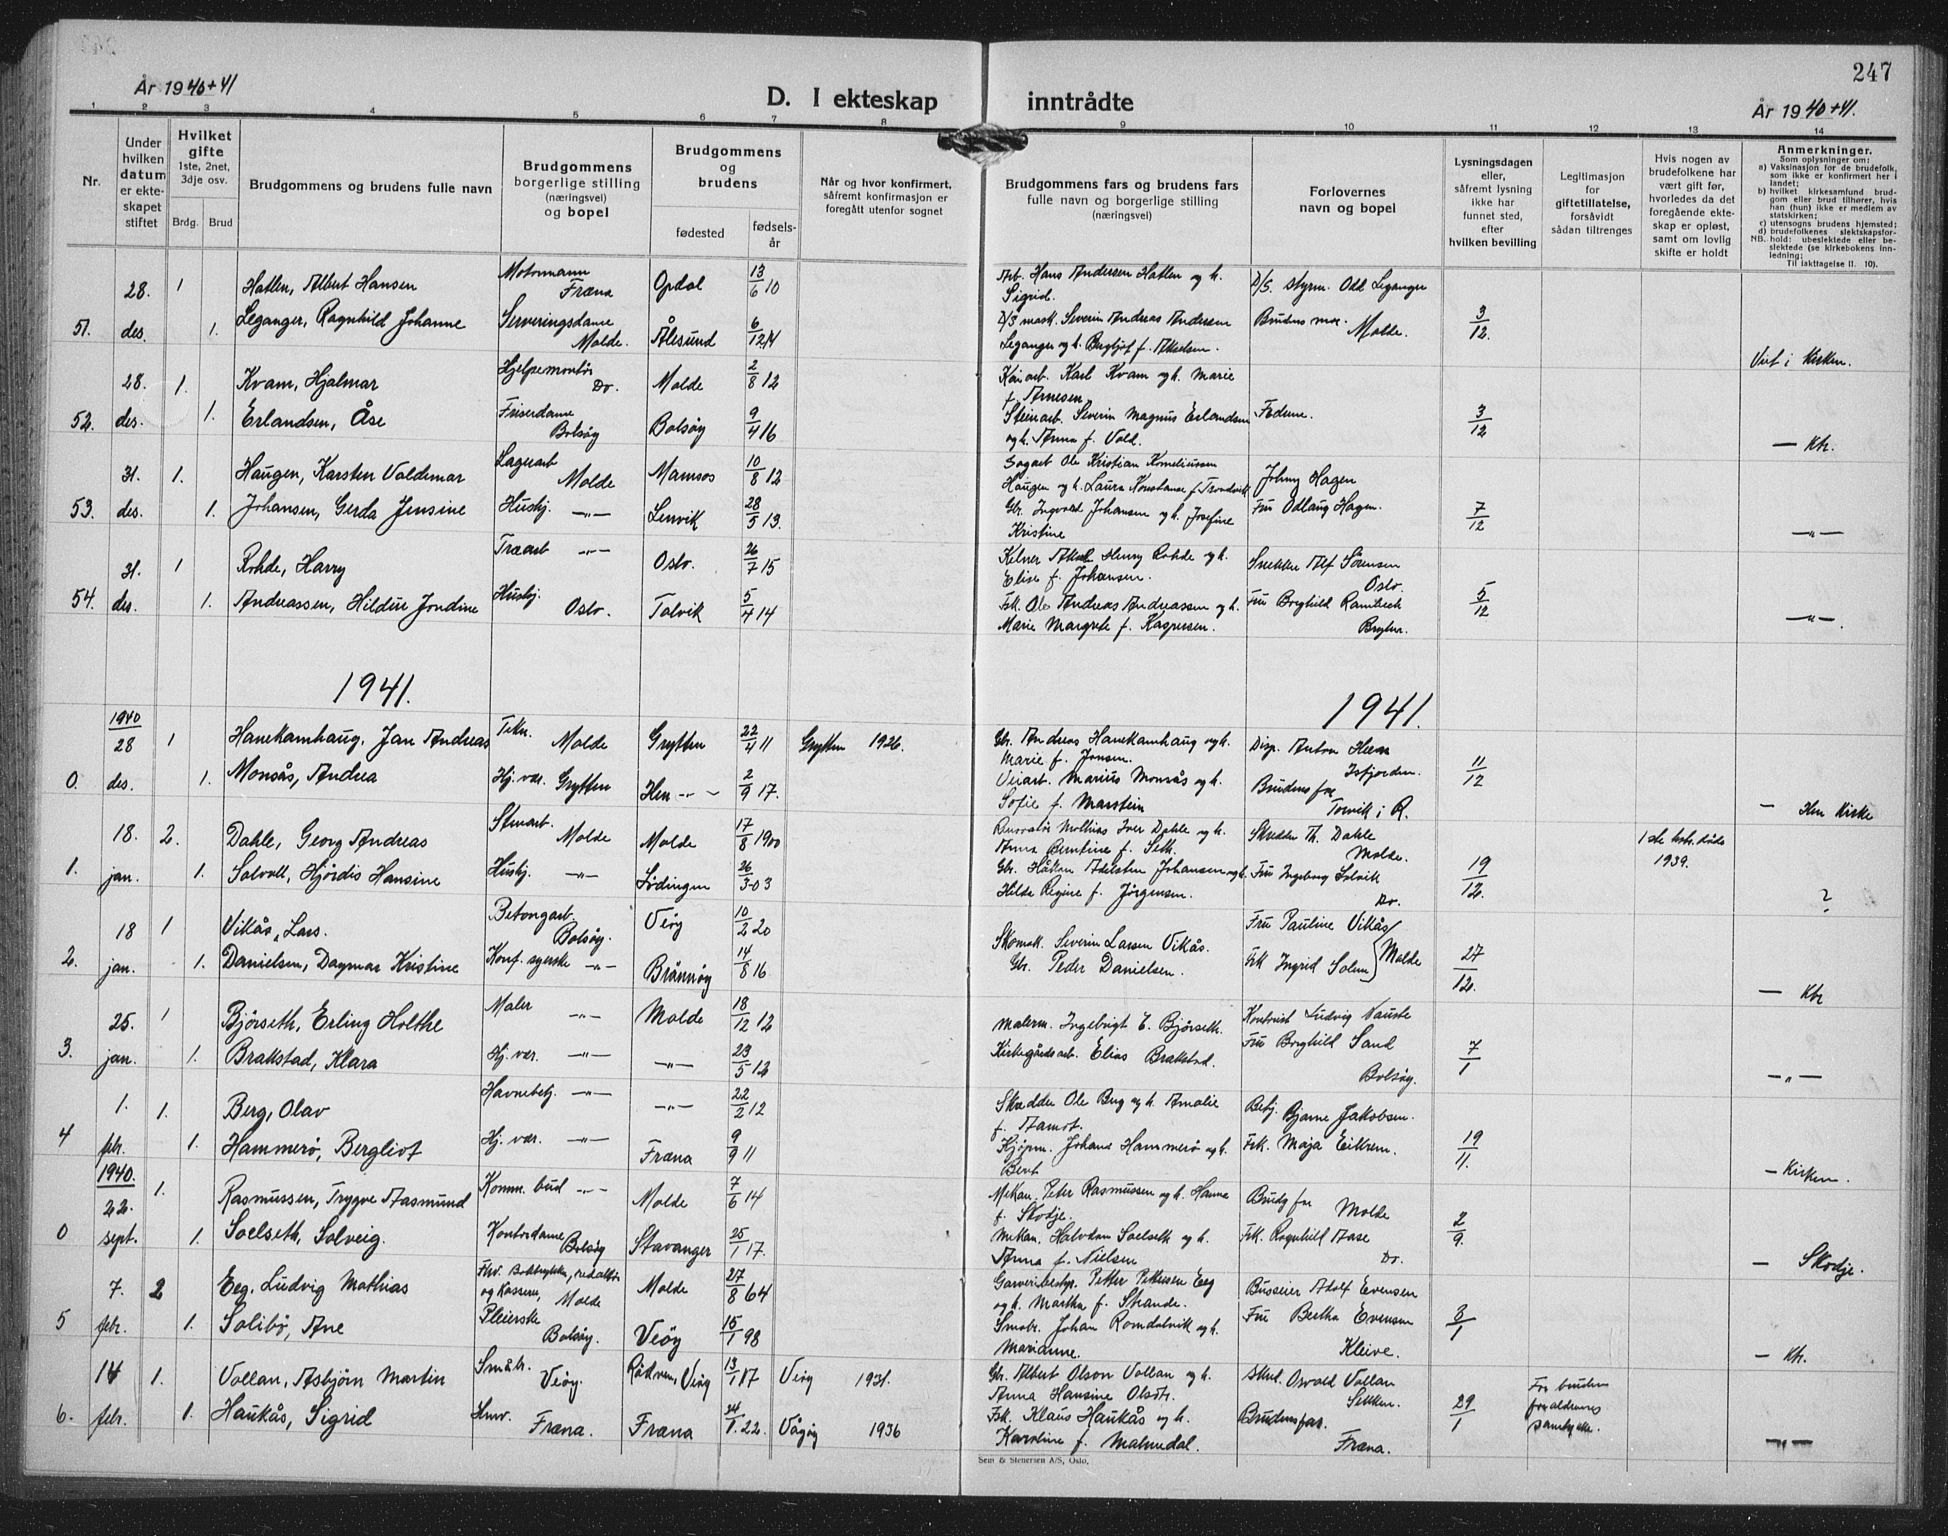 247
År 1940+41
D. I ekteskap inntrådte
År 1940+41.
1 2 3 4 5 6 7 8 9 10 11 12 13 14
Nr.
Under hvilken datum er ekteskapet stiftet
Hvilket gifte
1ste, 2net, 3dje osv.
Brdg. Brud
Brudgommens og brudens fulle navn
Brudgommens borgerlige stilling (næringsvei) og bopel
Brudgommens og brudens
fødested
fødselsår
Når og hvor konfirmert, såfremt konfirmasjon er foregått utenfor sognet
Brudgommens fars og brudens fars fulle navn og borgerlige stilling (næringsvei)
Forlovernes navn og bopel
Lysningsdagen eller, såfremt lysning ikke har funnet sted, efter hvilken bevilling
Legitimasjon for giftetillatelse, forsåvidt sådan tiltrenges
Hvis nogen av brudefolkene har vært gift før, hvorledes da det foregående ekteskap er opløst, samt om lovlig skifte er holdt
Anmerkninger.
Som oplysninger om:
a) Vaksinasjon for de brudefolk, som ikke er konfirmert her i landet;
b) hvilket kirkesamfund brudgom eller brud tilhører, hvis han (hun) ikke er medlem av statskirken;
c) utensogns brudens hjemsted;
d) brudefolkenes slektskapsforhold: ubeslektede eller beslektede (se kirkebokens innledning;
NB. Til iakttagelse II. 10).
28. 1 Hatlen, Albert Hansen Motormann Fræna Opdal 13/6 10 Arb. Hans Andersen Hatlen og h. Sigrid. D/S. styrm. Odd Leganger
51. des. 1. Leganger, Ragnhild Johanne Serveringsdame Molde. Ålesund 6/12 14 D/S mask. Severin Andreas Andersen Leganger og h. Bergljot f. Akselsen. Brudens mor. Molde. 3/12. Viet i Kirken.
28. 1. Kvam, Hjalmar Hjelpemontør Do. Molde 2/8 12 Kaiarb. Karl Kvam og h. Marie f. Arnesen
52. des. 1. Erlandsen, Åse Friserdame Bolsøy Bolsøy 9/4 16 Steinarb. Severin Magnus Erlandsen og h. Anna f. Vold. Fedrene. 3/12 — Ktr.
31. 1. Haugen, Karsten Valdemar Lagerarb Molde Namsos 10/8 12 Sagarb Ole Kristian Korneliussen Haugen og h. Laura Konstanse f. Johny Hagen
53. des. 1. Johansen, Gerda Jensine Husbj. —"— Lenvik 28/5 13. Gbr. Ingvald Johansen og h. Josefine Kristine Fru Odlaug Hagen. 7/12 —"—
31. 1 Rohde, Harry Træarb —"— Oslo. 26/7 15 Kelner Aksel Henry Rohde og h. Elise f. Johansen. Snekker Alf Sørensen Oslo.
54. des. 1. Andreassen, Hildur Jondine Husbj. Oslo. Talvik 5/4 14 Fsk. Ole Andreas Andreassen og h. Marie Margrete f. Kaspersen. Fru Borghild Rambech 5/12 —"—
1941. 1941.
1940
28 1 Hanekamhaug, Jan Andreas Tekn. Molde Grytten 22/4 11 Grytten 1926. Gbr. Andreas Hanekamhaug og h. Marie f. Jonsen. Disp. Anton Heen Isfjorden.
0. des. 1. Monsås, Andrea Hj. vær. Grytten Hen —"— 2/9 17. Veiarb. Marius Monsås og h. Sofie f. Marstein Brudens far Torvik i R. 11/12 — Hen Kirke
18. 2. Dahle, Georg Andreas Stenarb. Molde Molde 17/8 1900 Iver Dahle og h. Anna Berntine f. Seth. Skredder Th. Dahle Molde. 1ste hustr. døde 1939.
1. jan. 1. Solvoll, Hjørdis Hansine Husbj. —"— Lødingen 26/3 03 Gbr. Håkon Adelsten Johansen og h. Hilda Regine f. Jørgensen. Fru Ingeborg Solvik Do. 19/12. ?
18 1 Vikås, Lars. Betongarb. Bolsøy. Veøy 10/2 20 Skomak. Severin Larsen Vikås. Fru Pauline Vikås Molde
2. jan. 1. Danielsen, Dagmar Kristine Konf. syerske —"— Brønnøy 14/8 16 Gbr. Peder Danielsen. Frk Ingrid Solem 27/12. — Ktr
25. 1 Bjørseth, Erling Holthe Maler —"— Molde 18/12 12 Malerm. Ingebrigt E. Bjørseth. Kontorist Ludvig Nauste
3. jan. 1. Brakstad, Klara Hj. vær. —"— —"— 23/5 12 Kirkegårdsarb. Elias Brakstad. Fru Borghild Sand Bolsøy. 7/1 —"—
1. 1. Berg, Olav Havnebetj. —"— —"— 22/2 12 Skredder Ole Berg og h. Amalie f. Betj. Bjarne Jakobsen.
4 febr. 1. Hammerø, Bergliot Hj. vær. —"— Fræna 9/9 11 Kjøpm. Johans Hammerø og h. Berit Frk. Maja Eikrem. 19/11. — Kirken.
1940.
22. 1. Rasmussen, Trygve Aasmund Komm. bud —"— Molde 7/6 14 Mekan. Peter Rasmussen og h. Hanna f. Skodje. Brudg far Molde
0 sept. 1. Soelseth, Solveig. Kontordame Bolsøy Stavanger 25/1 17. Mekan. Halvdan Soelseth og h. Anna f. Nielsen Frk. Ragnhild Aase Do. 2/9. — Skodje.
7. 2 Eeg, Ludvig Mathias Fhv. Boktrykker, redaktør og Kasserer, Molde Molde 27/8 64 Garveribestyr. Petter Pettersen Eeg og h. Martha f. Strande. Busseier Adolf Evensen
5 febr. 1. Solibø, Ane Pleierske Bolsøy. Veøy 15/1 98 Smabr. Johan Romdalsvik og h. Marianne. Fru Bertha Evensen Kleive. 3/1 — Ktr.
14 1. Vollan, Asbjørn Martin Småbr. Veøy. Rødven, Veøy 13/1 17 Veøy 1931. Gbr. Albert Olson Vollan og h. Anna Hansine Olsdtr. Osvald Vollan Sekken. For bruden foreldrenes samtykke.
6. febr. 1. Haukås, Sigrid Hmv. Fræna. Fræna 24/1. 22. Vågøy 1936 Fsk. Klaus Haukås og h. Karoline f. Malmedal. Brudensfar. Fræna. 29/1 —"—
Sem & Stenersen A/S, Oslo.